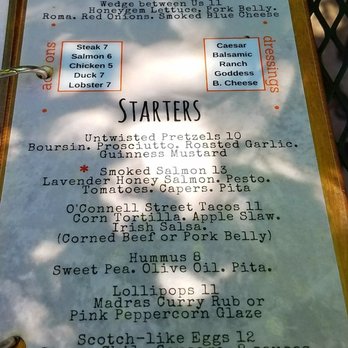 Wedge between Us 11
Honeygem Lettuce. Pork Belly.
Roma. Red Onions. Smoked Blue Cheese
Steak 7
Salmon 6
Chicken 5
Duck 7
Lobster 7
Caesar
Balsamic
Ranch
Goddess
B. Cheese
dressings
STARTERS
Untwisted Pretzels 10
Boursin. Prosciutto. Roasted Garlic.
Guinness Mustard
* Smoked Salmon 13
Lavender Honey Salmon. Pesto.
Tomatoes. Capers. Pita
O'Connell Street Tacos 11
Corn Tortilla. Apple Slaw.
Irish Salsa.
(Corned Beef or Pork Belly)
Hummus 8
Sweet Pea. Olive Oil. Pita.
Lollipops 11
Madras Curry Rub or
Pink Peppercorn Glaze
Scotch-like Eggs 12